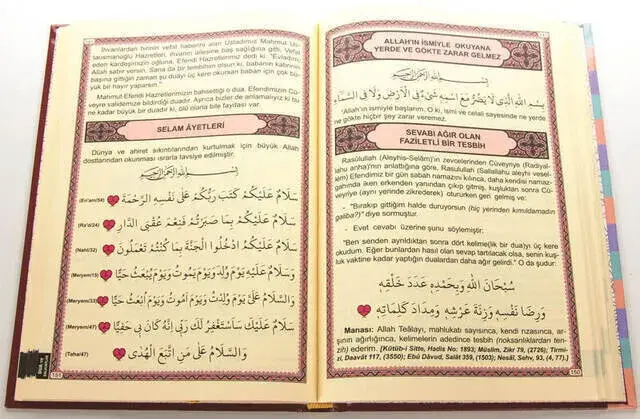 ALLAH'IN İSMİYLE OKUYANA
YERDE VE GÖKTE ZARAR GELMEZ
بِسْمِ اللهِ الرَّحْمٰنِ الرَّحِيمِ
بِسْمِ اللهِ الَّذِي لَا يَضُرُّ مَعَ اسْمِهِ شَيْءٌ فِي الْاَرْضِ وَلَا فِي السَّمَاءِ
"Allah'ın ismiyle başlarım. O ki, ismi ve celali sayesinde ne yerde
ne gökte hiçbir şey zarar veremez.
SEVABI AĞIR OLAN
FAZİLETLİ BİR TESBİH
Rasûlullah (Aleyhis-Selâm)'in zevcelerinden Cüveyriye (Radiyal-
lahu anha)'nın anlattığına göre, Rasulullah (Sallallahu aleyhi vesel-
lem) Efendimiz bir gün sabah namazını kılınca, daha kendisi namaz-
gahında iken erkenden yanından çıkıp gitmiş, kuşluktan sonra Cü-
veyriye (aynı yerinde zikrederek) otururken geri gelmiş ve:
- "Bırakıp gittiğim halde duruyorsun (hiç yerinden kımıldamadın
galiba?)" diye sormuştur.
- Evet cevabı üzerine şunu söylemiştir:
"Ben senden ayrıldıktan sonra dört kelime(lik bir dua)yı üç kere
okudum. Eğer bunlardan hasıl olan sevap tartılacak olsa, senin kuş-
luk vaktine kadar yaptığın dualardan daha ağır gelirdi." O da şudur:
سُبْحَانَ اللهِ وَبِحَمْدِهِ عَدَدَ خَلْقِهِ
وَرِضَا نَفْسِهِ وَزِنَةَ عَرْشِهِ وَمِدَادَ كَلِمَاتِهِ
Manası: Allah Teâlayı, mahlukatı sayısınca, kendi rızasınca, ar-
şının ağırlığınca, kelimelerin adedince tesbih (noksanlıklardan ten-
zih) ederim. [Kütüb-i Sitte, Hadis No: 1893; Müslim, Zikr 79, (2726); Tirmi-
zi, Daavât 117, (3550); Ebû Dâvud, Salât 359, (1503); Nesâî, Sehv, 93, (4, 77).]
150
İhvanlardan birinin vefat haberini alan Üstadımız Mahmut Us-
taosmanoğlu Hazretleri, ihvanın ailesine baş sağlığına gitti. Vefat
eden kardeşimizin oğluna, Efendi Hazretlerimiz dedi ki: "Evladım,
Allah sabır versin. Sana da bir tembihim olsun ki, babanın kabrinin
başına gittiğin zaman şu duayı üç kere okursan baban için çok bü-
yük bir hayır yaparsın."
Mahmut Efendi Hazretlerimizin bahsettiği o dua, Efendimizin Cü-
veyre validemize bildirdiği duadır. Ayrıca bizler de anlamalıyız ki bu
ne kadar büyük bir duadır ki, ölü olana bile faydası var.
SELAM ÂYETLERİ
Dünya ve ahiret sıkıntılarından kurtulmak için büyük Allah
dostlarından okunması ısrarla tavsiye edilmiştir.
بِسْمِ اللهِ الرَّحْمٰنِ الرَّحِيمِ
سَلَامٌ عَلَيْكُمْ كَتَبَ رَبُّكُمْ عَلَى نَفْسِهِ الرَّحْمَةَ (En'am/54)
سَلَامٌ عَلَيْكُمْ بِمَا صَبَرْتُمْ فَنِعْمَ عُقْبَى الدَّارِ (Ra'd/24)
سَلَامٌ عَلَيْكُمُ ادْخُلُوا الْجَنَّةَ بِمَا كُنْتُمْ تَعْمَلُونَ (Nahl/32)
وَسَلَامٌ عَلَيْهِ يَوْمَ وُلِدَ وَيَوْمَ يَمُوتُ وَيَوْمَ يُبْعَثُ حَيًّا (Meryem/15)
وَالسَّلَامُ عَلَيَّ يَوْمَ وُلِدْتُ وَيَوْمَ اَمُوتُ وَيَوْمَ اُبْعَثُ حَيًّا (Meryem/33)
سَلَامٌ عَلَيْكَ سَاَسْتَغْفِرُ لَكَ رَبِّي اِنَّهُ كَانَ بِي حَفِيًّا (Meryem/47)
وَالسَّلَامُ عَلَى مَنِ اتَّبَعَ الْهُدَى (Taha/47)
151